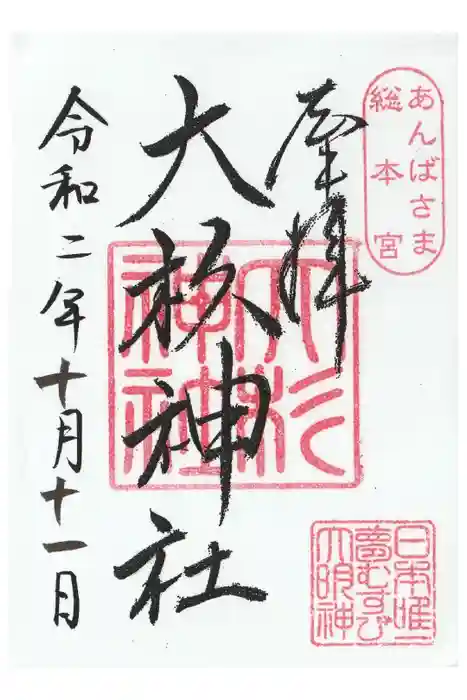 あんばさま
総本宮
奉拝
大杉神社
大杉
神社
日本唯一
夢むすび
大明神
令和二年十月十一日